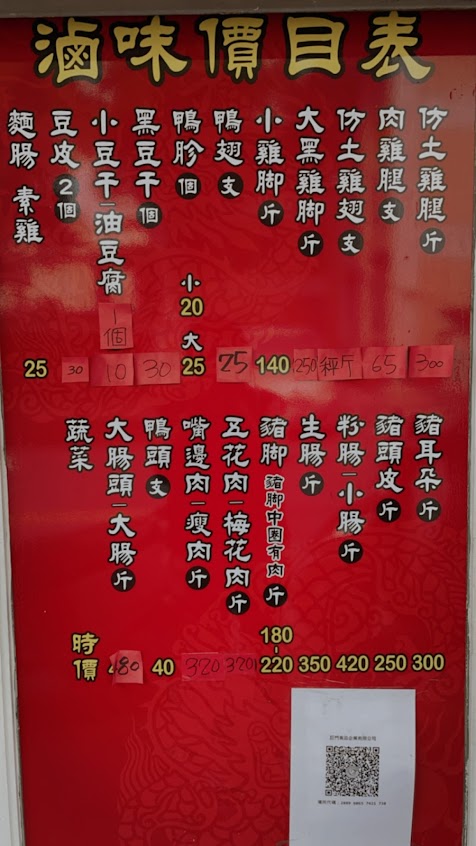 滷味價目表
仿土雞腿 斤 300
肉雞腿 支 65
仿土雞翅 支 秤斤
大黑雞腳 斤 250
小雞腳 斤 140
鴨翅 支 75
鴨胗 個 小20 大25
黑豆干 個 30
小豆干—油豆腐 1個 10
豆皮 2個 30
麵腸 素雞 25
豬耳朵 斤 300
豬頭皮 斤 250
粉腸—小腸 斤 420
生腸 斤 350
豬腳 豬腳中圈有肉 斤 180-220
五花肉—梅花肉 斤 320
嘴邊肉—瘦肉 斤 320
鴨頭 支 40
大腸頭—大腸 斤 80
蔬菜 時價